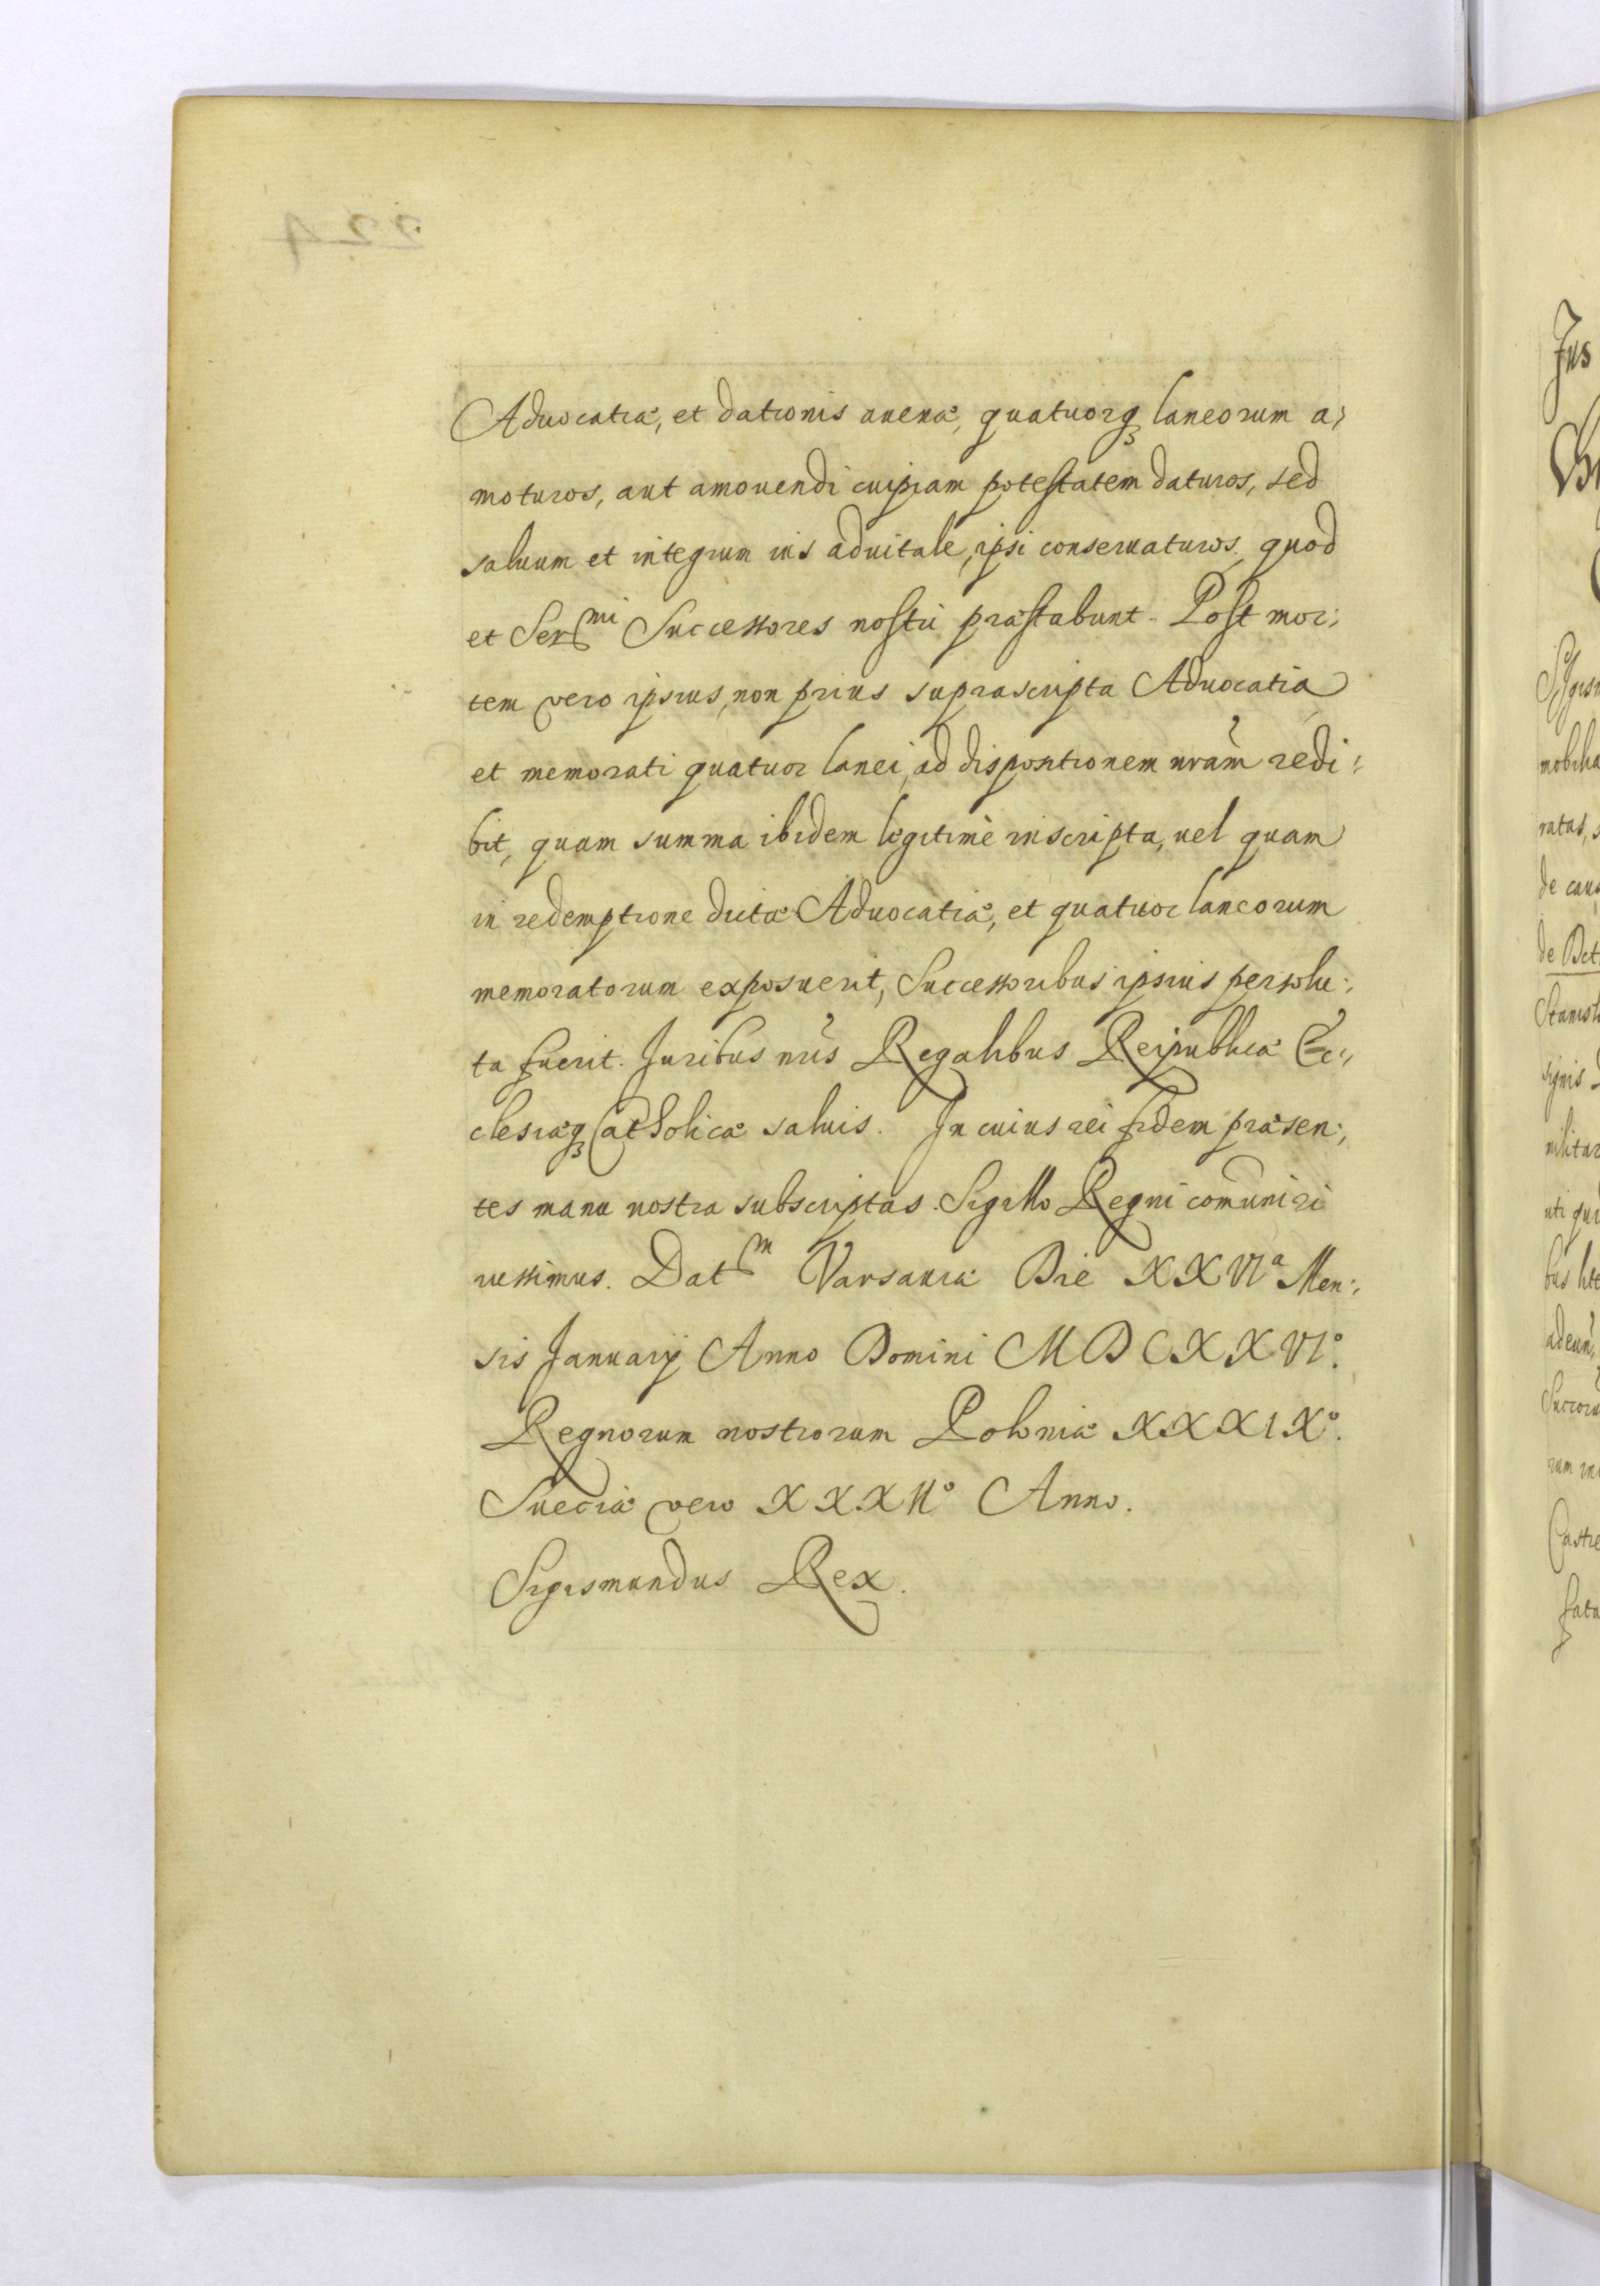 Aduocatiæ, et dationis auenæ, quatuorq̨ laneorum a;
moturos, aut amouendi cuipiam potestatem daturos, sed
saluum et integrum ius aduitale, ipsi conseruaturos, quod
et Ser^mi Successores nostri præstabunt. Post mor;
tem vero ipsius, non prius suprascripta Aduocatia
et memorati quatuor lanei, ad dispositionem nram̃ redi;
bit, quam summa ibidem legitimè inscripta, uel quam
in redemptione dictæ Aduocatiæ, et quatuor laneorum
memoratorum exposuerit, Successoribus ipsius persolu;
ta fuerit. Juribus nr̃is Regalibus Reipublicæ Ec;
clesiæq̨ Catholicæ saluis. In cuius rei fidem præsen;
tes manu nostra subscriptas Sigillo Regni com̃uniri
iussimus. Dat^m Varsauiæ Die XXVI^a Men;
sis Januarij Anno Domini MDCXXVI°.
Regnorum nostrorum Poloniæ XXXIX°.
Sueciæ vero XXXII° Anno.
Sigismundus Rex.